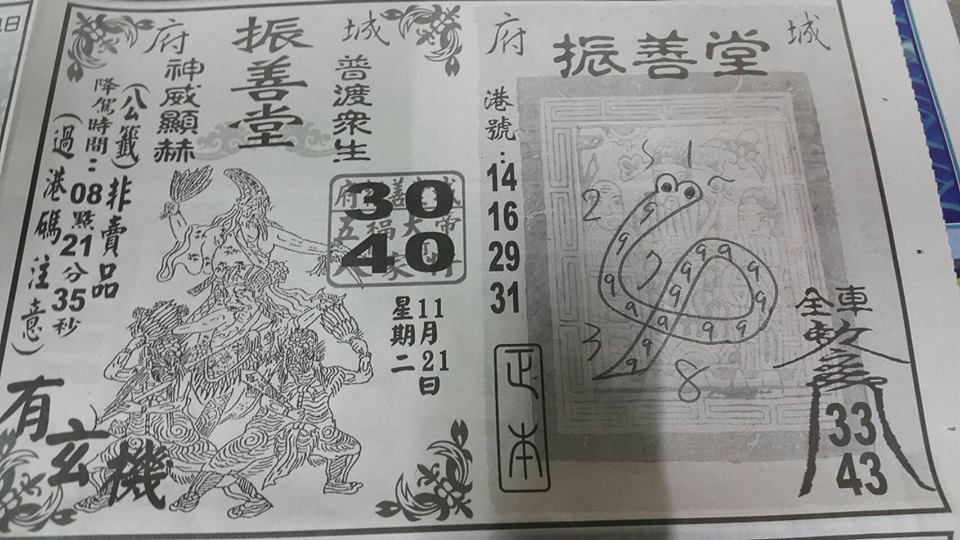 府 振善堂 城
神威顯赫
普渡眾生
(八公籤)非賣品
降駕時間:08點21分35秒
(過港碼注意)
30
40
五福大帝
11月21日
星期二
有玄機
府 振善堂 城
港號:
14
16
29
31
正本
5 1
2
7
3
8
9 9 9 9 9 9 9 9 9 9 9 9 9 9
全車
33
43